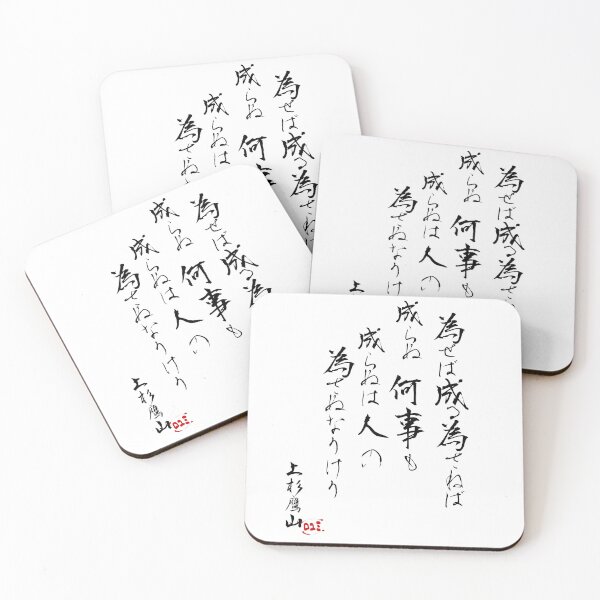 為せば成る為さね
成らぬ何事
成らぬは
為さぬ
為せば成る為さ
成らぬ何事も
成らぬは人の
為さぬなりけ
上
為せば成る為
成らぬ何事も
成らぬは人の
為さぬなりけり
上杉鷹山
為せば成る為さねば
成らぬ何事も
成らぬは人の
為さぬなりけり
上杉鷹山